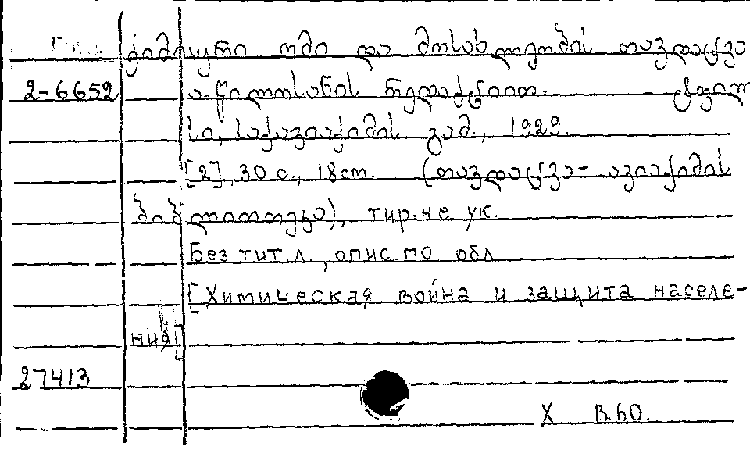 ქიმიური ომი და მოსახლეობის თავდაცვა
2-6652 რედაქციით. ტფილი-
სი, საქავიაქიმის გამ., 1929.
[2], 30 с., 18 cm. (თავდაცვა-ავიაქიმის
ბიბლიოთეკა), тир. не ук.
Без тит. л., опис по обл
[Химическая война и защита населе-
ния]
27413
X В.60.